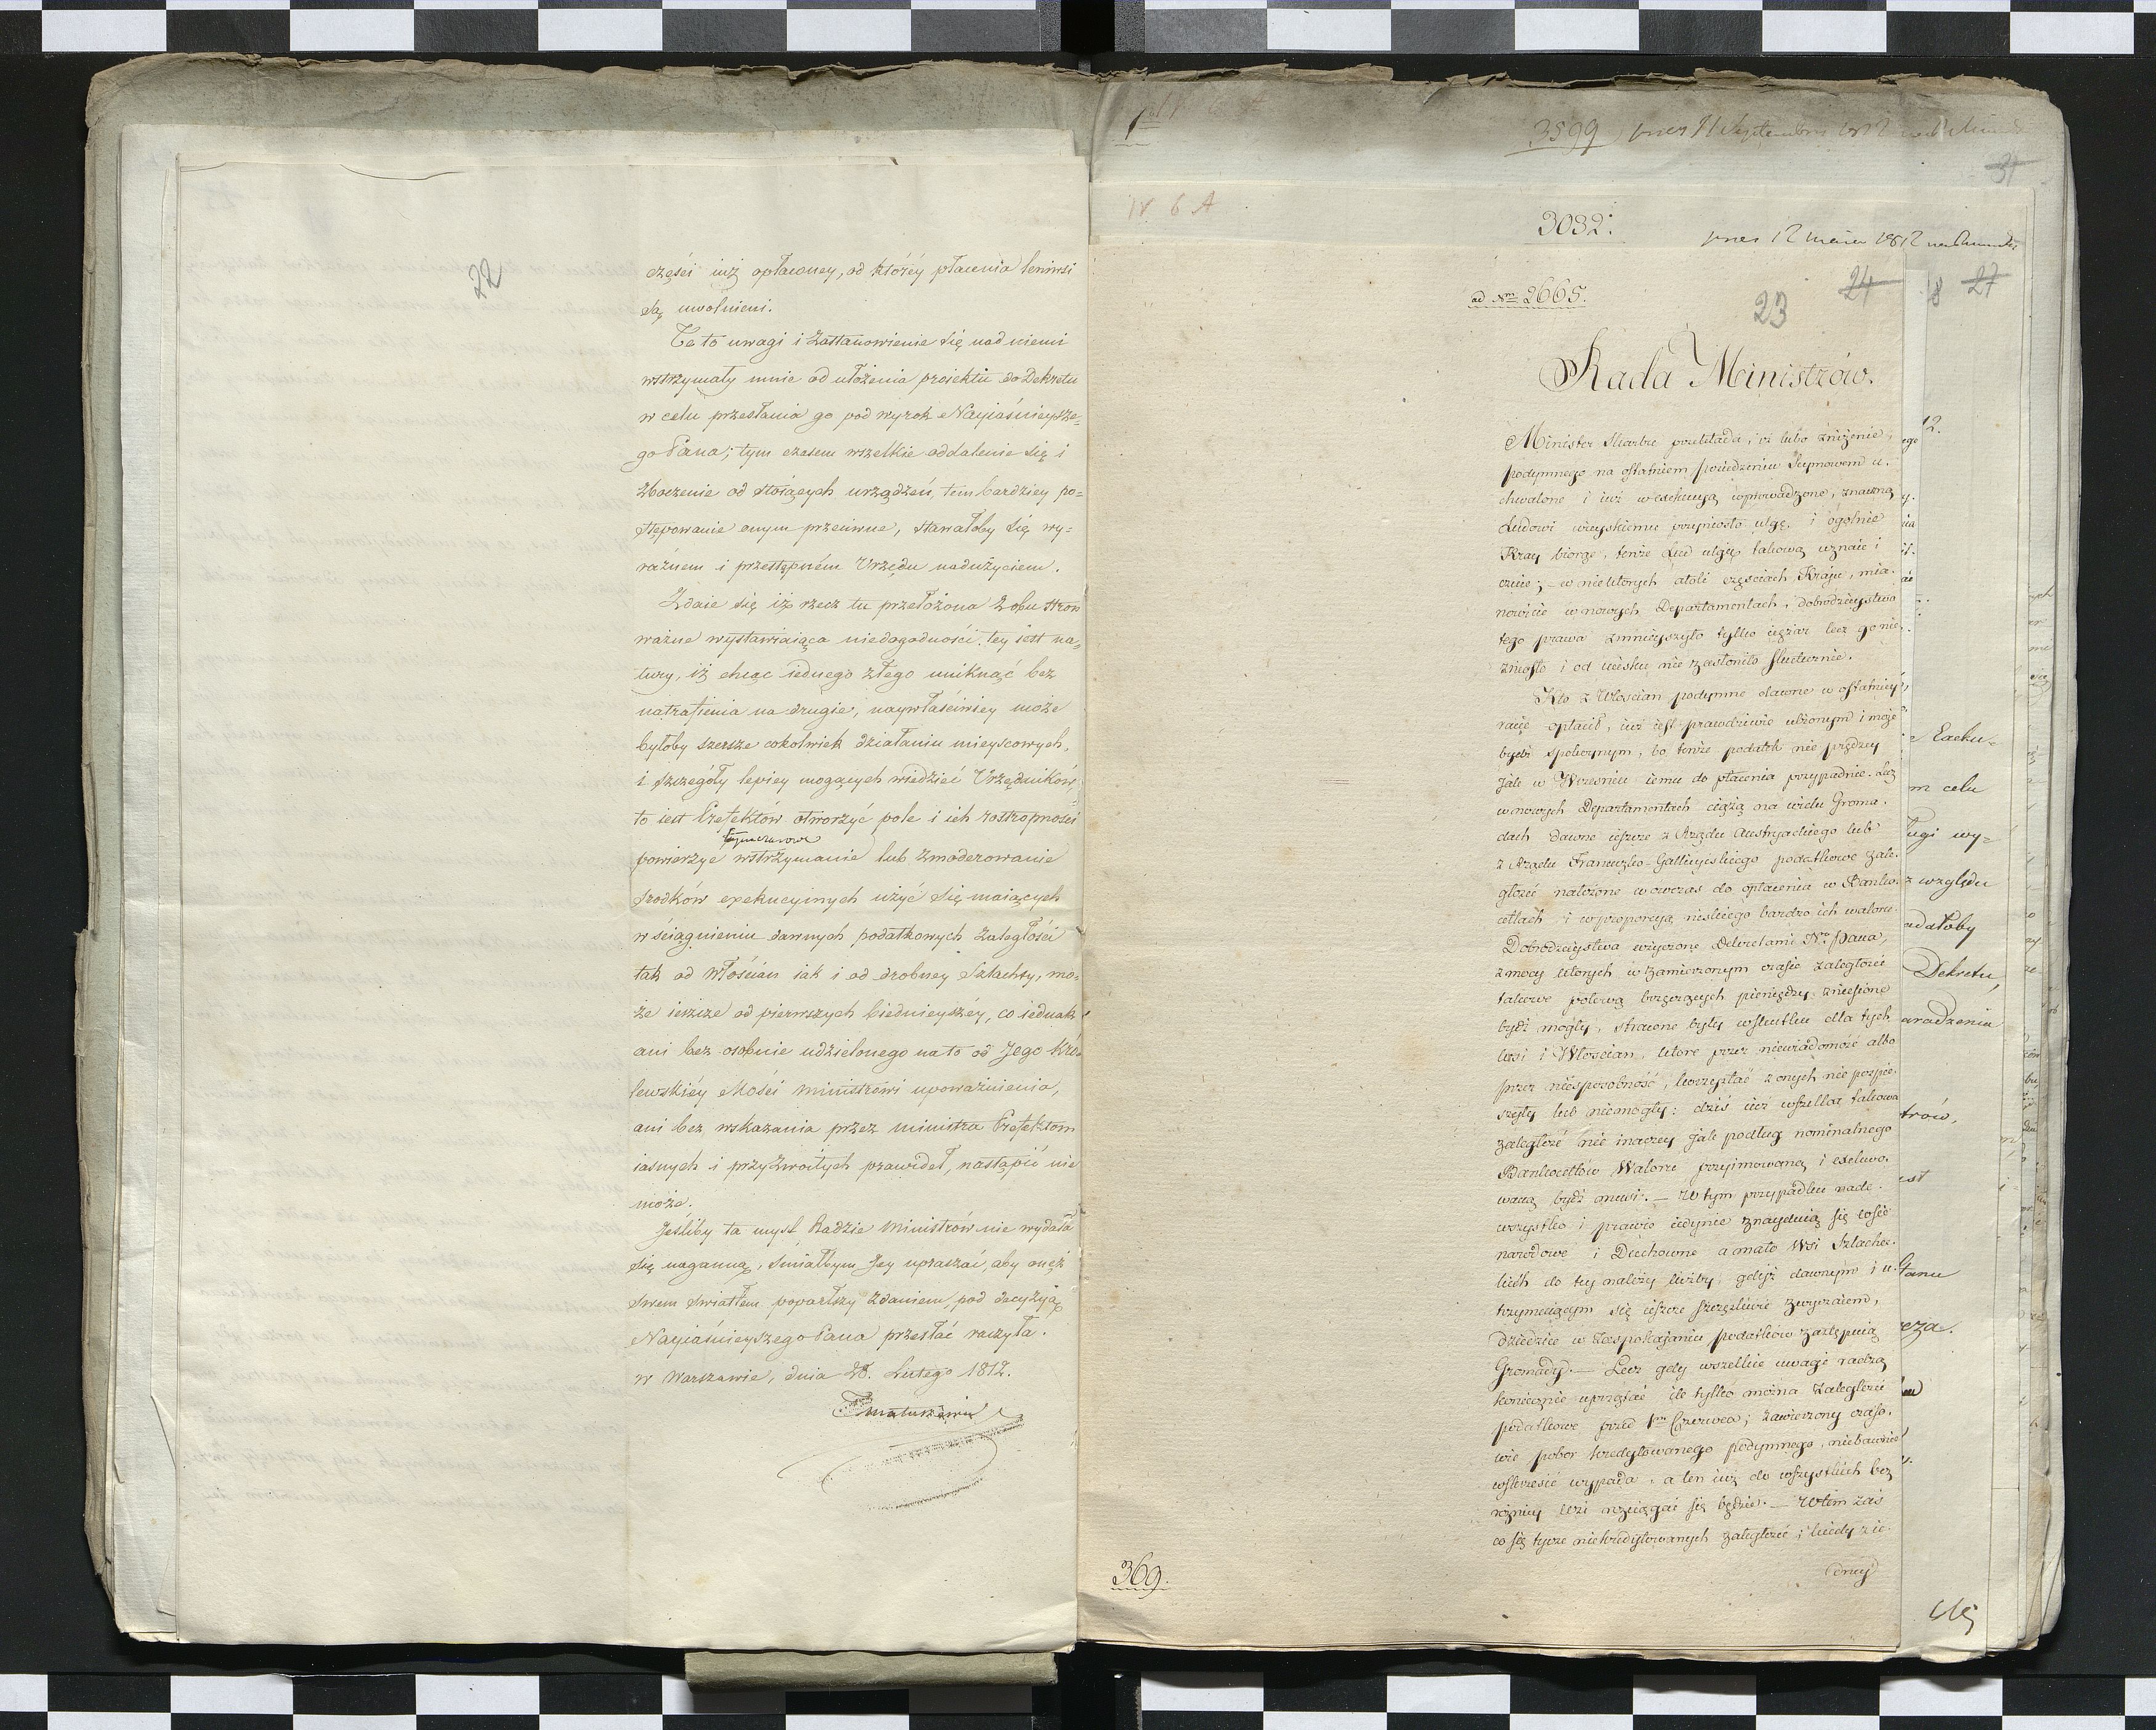 22
części iuż opłaconey, od któréy płacenia leniwsi
są uwolnieni.
Te to uwagi i zastanowienie się nad niemi
wstrzymały mnie od ułożenia proiektu do Dekretu
w celu przesłania go pod wyrok Nayiaśnieysze-
go Pana; tym czasem wszelkie oddalenie się i
zboczenie od stoiących urządzeń, tem bardziey po=
stępowanie onym przeciwne, stawałoby się wy=
raźnem i przestępném Urzędu nadużyciem.
Zdaie się iż rzecz tu przełożona z obu stron
ważne wystawiaiąca niedogodności, tey iest na=
tury, iż chcąc iednego złego uniknąć bez
natrafienia na drugie, naywłaściwiey może
byłoby szersze cokolwiek działaniu mieyscowych,
i szczegóły lepiey mogących wiedzieć Urzędników
to iest Prefektów otworzyć pole i ich roztropności
tymczasowe
powierzyć wstrzymanie lub zmoderowanie
srodków exekucyinych użyć się maiących
w ściągnieniu dawnych podatkowych zaległości
tak od Włościan iak i od drobney Szlachty, mo-
że ieszcze od pierwszych biednieyszéy, co iednak
ani bez osobnie udzielonego na to od Jego Kró-
lewskiéy Mości Ministrowi upoważnienia,
ani bez wskazania przez Ministra Prefektom
iasnych i przyzwoitych prawideł, nastąpić nie
może.
Jeśliby ta myśl Radzie Ministrów nie wydała
się naganną, śmiałbym Jey upraszać, aby onęż
swem światłem poparłszy zdaniem, pod decyzyią
Nayiaśnieyszego Pana przesłać raczyła.
w Warszawie, dnia 28. Lutego 1812.
Matuszewic
3599
31
IV 6 A
3032.
pres 12 marca 1812
ad Nrm 2665.
23 24 18 27
Rada Ministrów.
Minister Skarbu przekłada, iż lubo zniżenie
podymnego na ostatniem posiedzeniu Seymowem u-
chwalone i iuż w exekucyą wprowadzone, znaczną
Ludowi wieyskiemu przyniosło ulgę, i ogólnie
Kray biorąc, tenże Lud ulgę takową uznaie i
czuie; – w niektórych atoli częściach Kraju, mia-
nowicie w nowych Departamentach, dobrodzieystwo
tego prawa zmnieyszyło tylko ciężar lecz go nie
zniosło i od ucisku nie zasłoniło skutecznie.
Kto z Włościan podymne dawne w ostatniey
racie opłacił, iuż iest prawdziwie ulżonym i może
bydź spokoynym, bo tenże podatek nie prędzey
jak w Wrześniu iemu do płacenia przypadnie. Lecz
w nowych Departamentach ciążą na wielu Groma-
dach dawne ieszcze z Rządu Austryackiego lub
z Rządu Francuzko-Gallicyiskiego podatkowe zale-
głości nałożone wowczas do opłacenia w Banko-
cetlach i w proporcyą niskiego bardzo ich waloru.
Dobrodzieystwa użyczone Dekretami N° Pana,
z mocy których w zamierzonym czasie zaległości
takowe połową brzęczących pieniędzy zniesione
bydź mogły, stracone były w skutku dla tych
Wsi i Włościan, które przez niewiadomość albo
przez niesposobność, korzystać z onych nie pospie-
szyły lub niemogły: dziś iuż wszelka takowa
zaległość nie inaczey jak podług nominalnego
Bankocetlów Waloru przyimowaną i exekwo-
waną bydź musi. – W tym przypadku nade-
wszystko i prawie iedynie znayduią się wsie
narodowe i Duchowne a mało Wsi Szlachec-
kich do tey należy liczby, gdyż dawnym i u-
trzymuiącym się ieszcze szczęśliwie zwyczaiem,
Dziedzice w zaspokajaniu podatków zastępuią
Gromady. – Lecz gdy wszelkie uwagi radzą
koniecznie uprzątać ile tylko można zaległości
podatkowe przed 1m Czerwca; zawieszony czaso-
wie pobór kredytowanego podymnego, niebawnie
wskrzesić wypada, a ten iuż do wszystkich bez
różnicy Wsi rozciągać się będzie. – W tém zaś
co się tycze niekredytowanych zaległości, kiedy z ie-
dney
369.
12.
m celu
z względu
Dekretu,